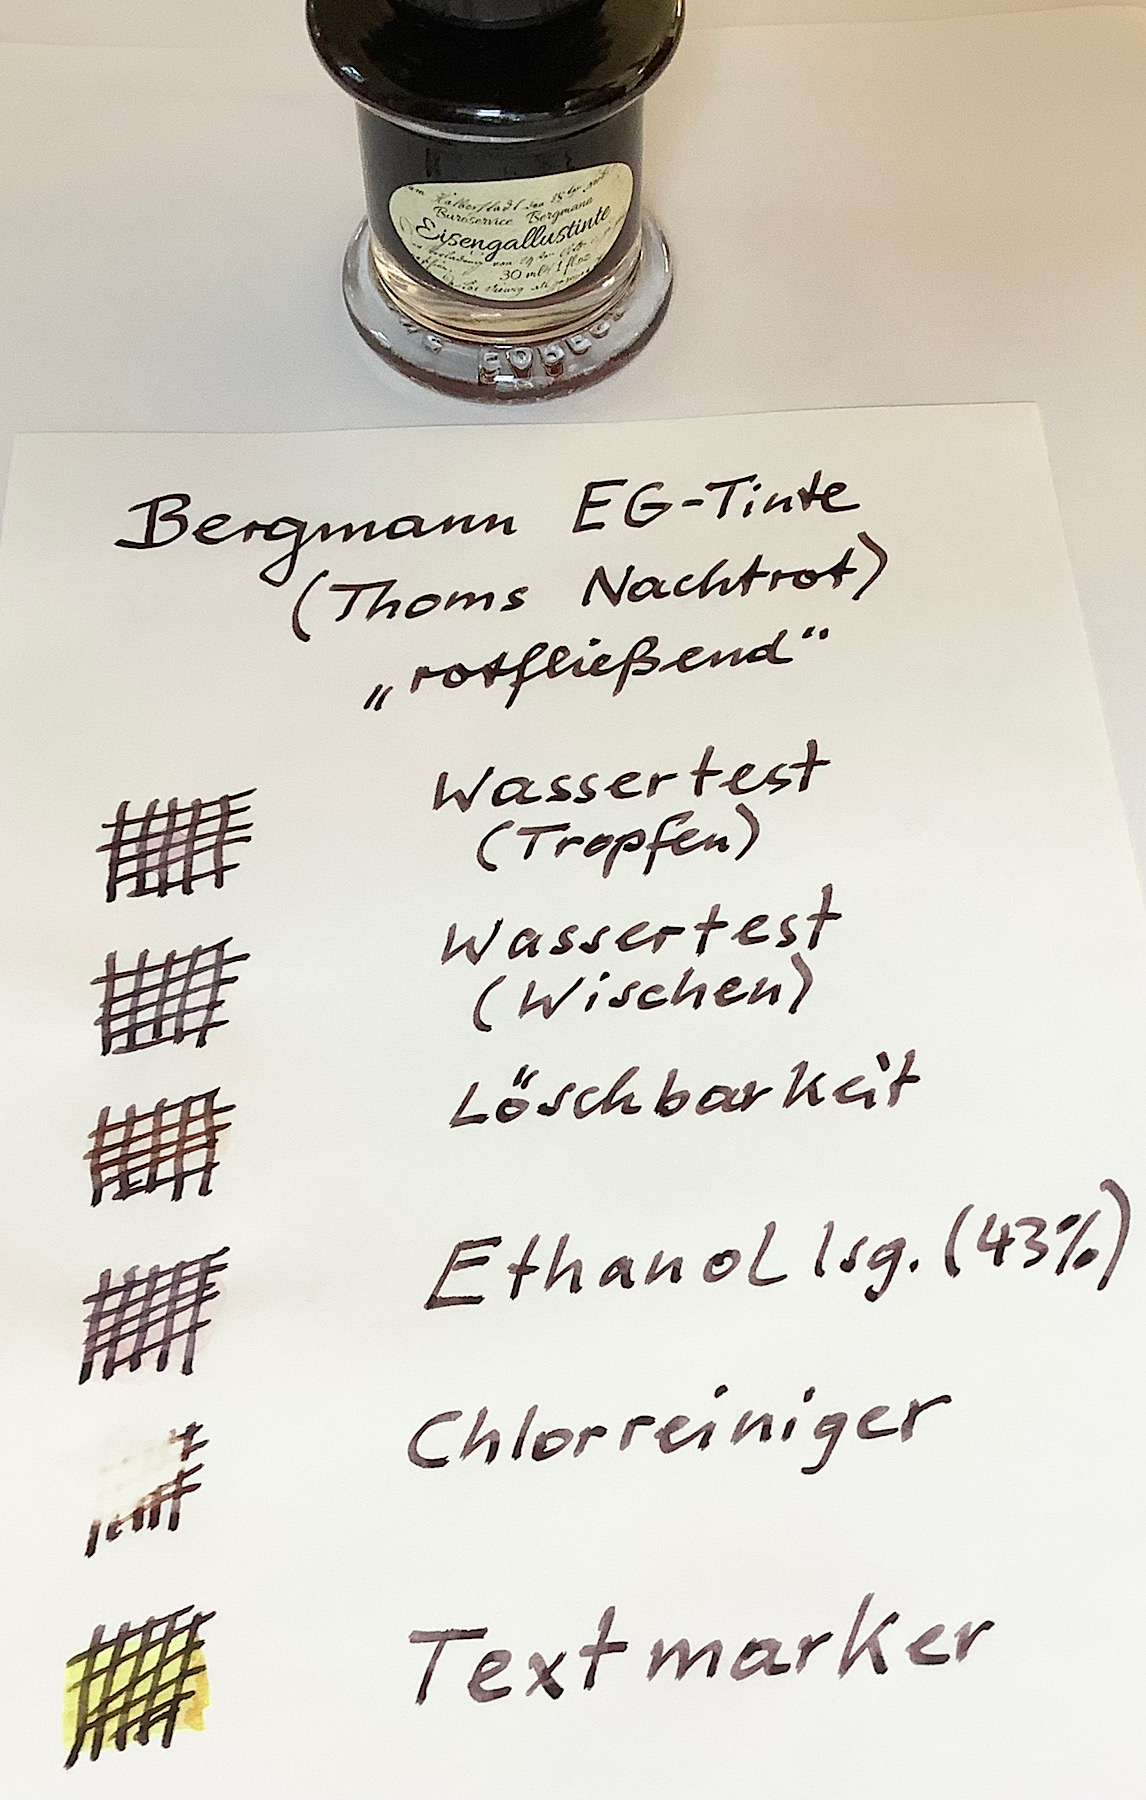 Büroservice Bergmann
Eisengallustinte
30 ml / 1 fl oz
Bergmann EG-Tinte
(Thoms Nachtrot)
„rotfließend“
Wassertest
(Tropfen)
Wassertest
(Wischen)
Löschbarkeit
Ethanol lsg. (43%)
Chlorreiniger
Textmarker